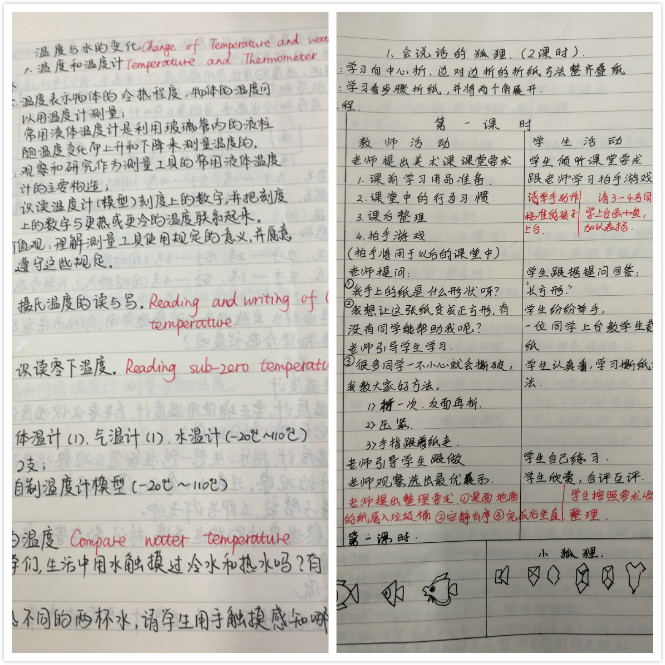 温度与水的变化 Change of Temperature and wate
1. 温度和温度计 Temperature and Thermometer
温度表示物体的冷热程度, 物体的温度可
以用温度计测量;
常用液体温度计是利用玻璃管内的液柱
随温度变化而上升和下降来测量温度的。
观察和研究作为测量工具的常用液体温度
计的主要构造;
识读温度计(模型)刻度上的数字,并把刻度
上的数字与更热或更冷的温度联系起来。
值观: 理解测量工具使用规定的意义,并愿意
遵守这些规定。
摄氏温度的读与写。Reading and writing of
temperature
识读零下温度。Reading sub-zero temperatu
体温计(1)、气温计(1)、水温计(-20℃~110℃)
2支;
自制温度计模型(-20℃~110℃)
温度 Compare water temperature
学们,生活中用水触摸过冷水和热水吗?有
不同的两杯水,请学生用手触摸感知哪
1. 会说话的狐狸. (2课时).
学习向中心折,边对边折的折纸方法整齐叠纸
学习看步骤折纸,并将两个角展开.
程.
第一课时
教师活动
学生活动
老师提出美术课课堂要求
1. 课前学习用品准备.
2. 课堂中的行为习惯
3. 课台整理
4. 拍手游戏
(拍手将用于以后的课堂中)
学生倾听课堂要求
跟老师学习拍手游戏
请3-4名同
学上台画小鱼,
加以表扬.
老师提问:
①我手上的纸是什么形状呀?
②我想让这张纸变成正方形,有
没有同学能帮助我呢?
老师引导学生学习.
③很多同学一不小心就会撕破,
我教大家好方法。
1)折一次,反面再折.
2)压紧.
3)手指跟着纸走.
老师引导学生跟做
老师观察选出最优展示.
学生跟据提问回答:
"长方形."
学生纷纷举手,
一位同学上台教学生
纸
学生认真看,学习撕纸
法.
学生自己练习.
学生欣赏,自评互评.
老师提出整理要求 ①桌面地面
的纸屑入垃圾桶 ②安静有序 ③完成后坐直
学生按照要求收
整理.
第二课时.
小狐狸.